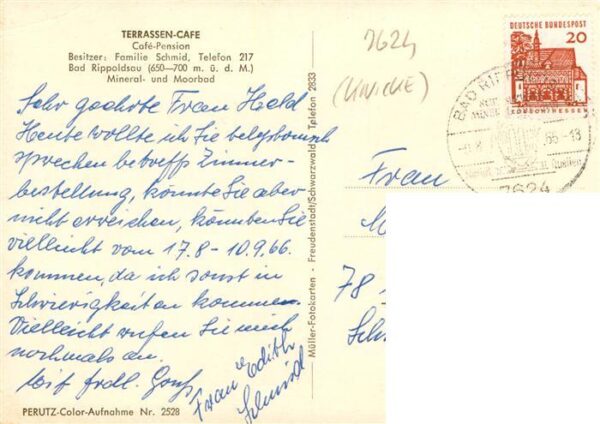 TERRASSEN-CAFE
Café-Pension
Besitzer: Familie Schmid, Telefon 217
Bad Rippoldsau (650—700 m. ü. d. M.)
Mineral- und Moorbad
Sehr geehrte Frau Held
Heute wollte ich Sie telephonisch
sprechen betreff Zimmer-
bestellung, könnte Sie aber
nicht erreichen, könnten Sie
vielleicht vom 17.8 - 10.9.66.
kommen, da ich sonst in
Schwierigkeiten komme.
Vielleicht rufen Sie mich
nochmals an.
Mit frdl. Gruß
Frau Edith
Schmid
PERUTZ-Color-Aufnahme Nr. 2528
Müller-Fotokarten - Freudenstadt/Schwarzwald - Telefon 2833
7624
(KNICKE)
DEUTSCHE BUNDESPOST
20
LORSCH/HESSEN
BAD RIPP
66-13
7624
Frau
78